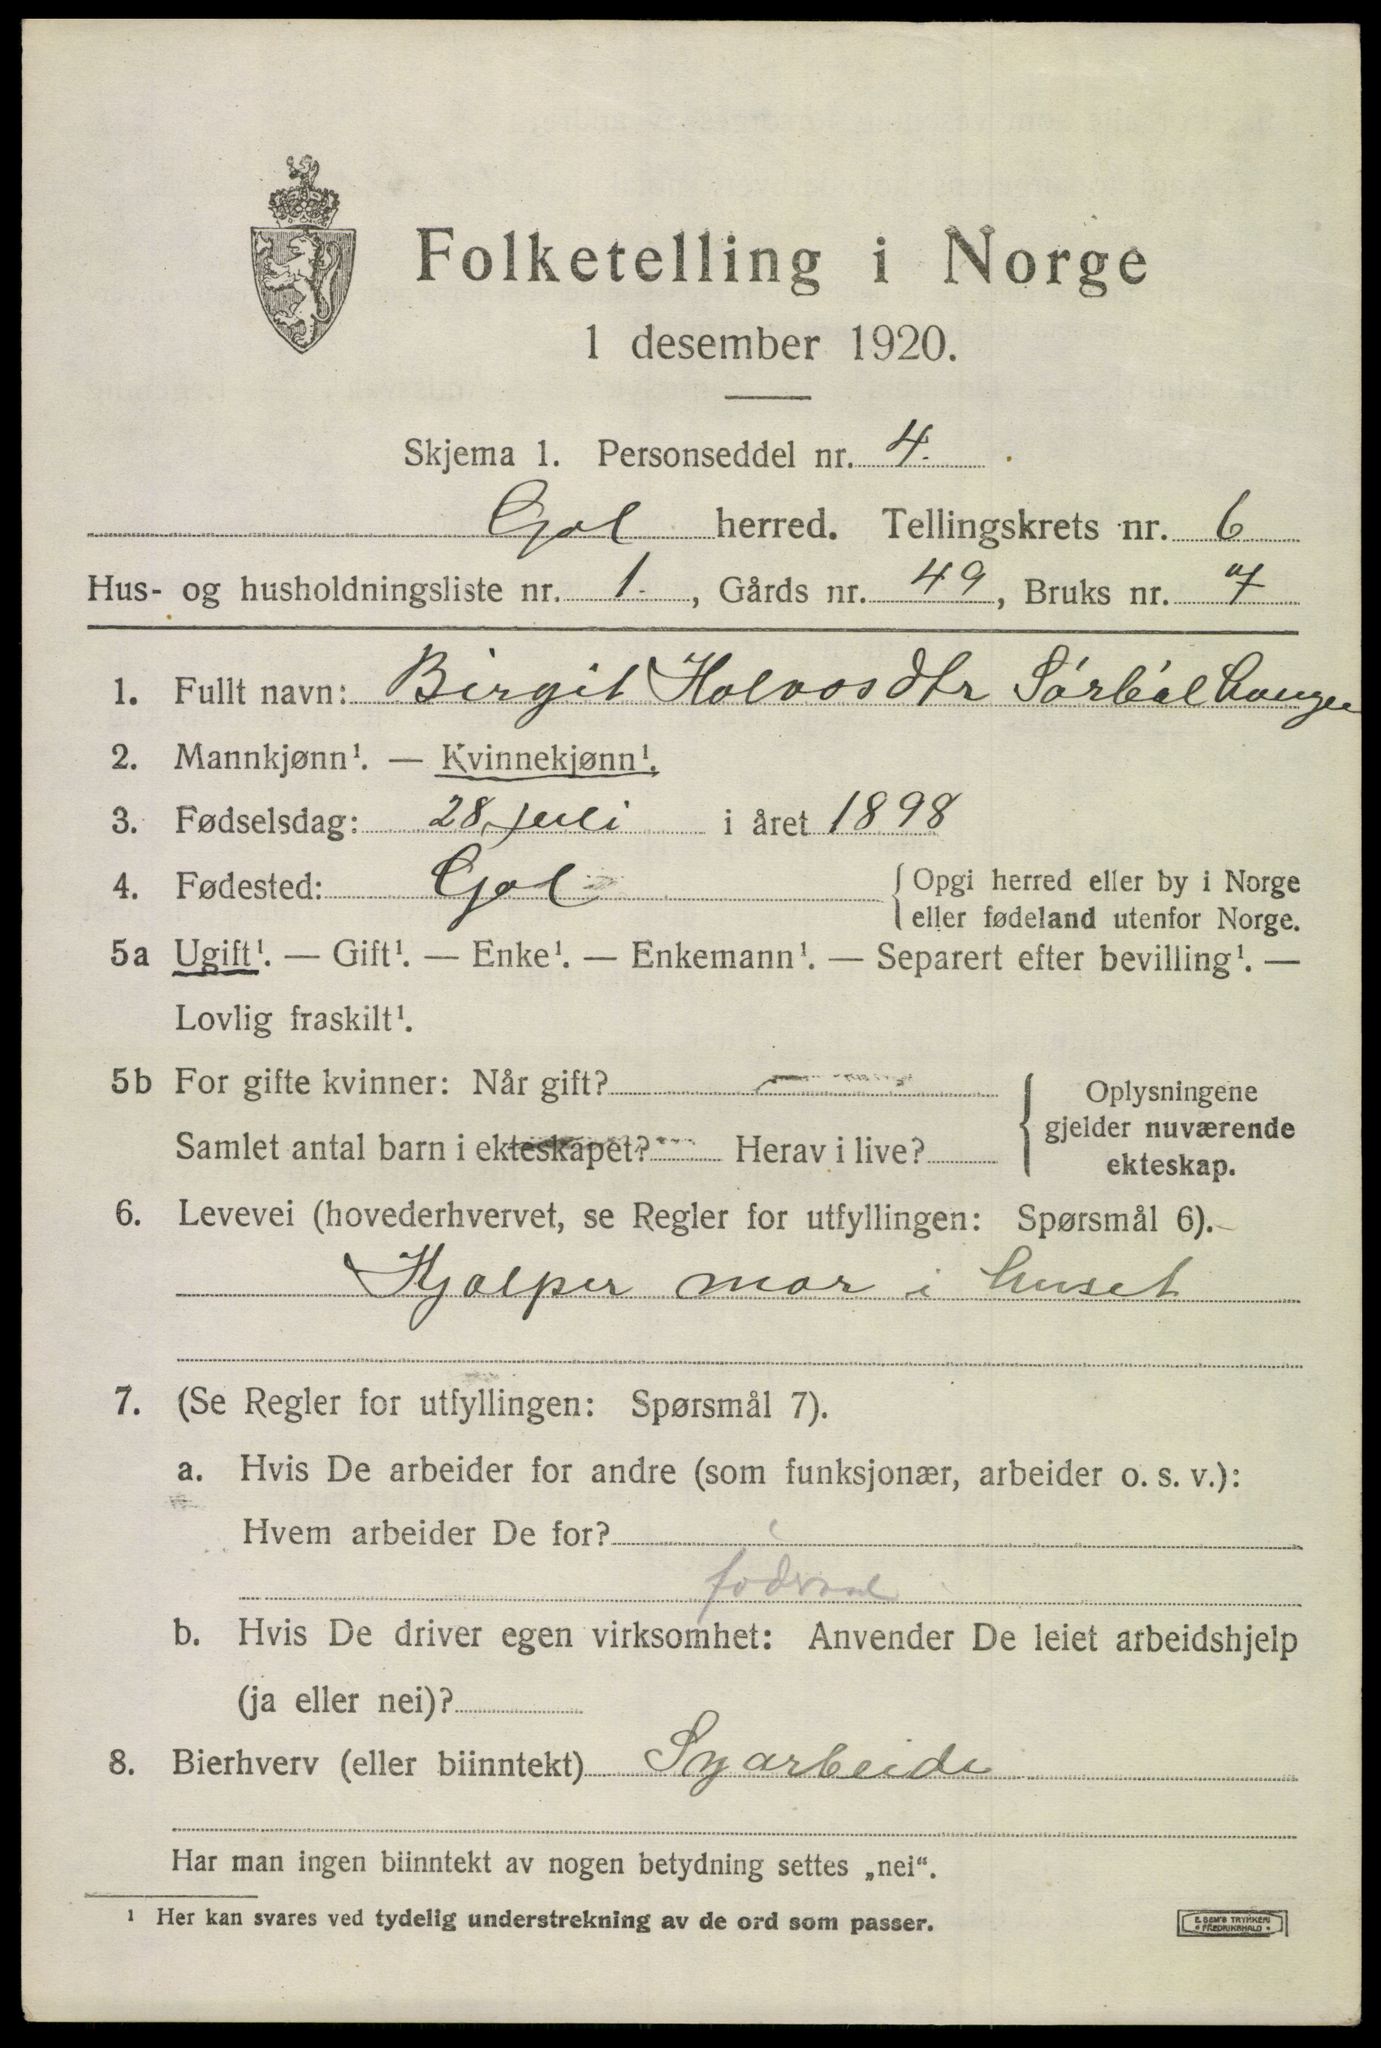 Folketelling i Norge
1 desember 1920.
Skjema 1. Personseddel nr. 4.
Gol herred. Tellingskrets nr. 6
Hus- og husholdningsliste nr. 1. , Gårds nr. 49, Bruks nr. 7
1. Fullt navn: Birgit Halvosdtr Sørbøl
2. Mannkjønn¹. — Kvinnekjønn¹.
3. Fødselsdag: 28 juli i året 1898
4. Fødested: Gol { Opgi herred eller by i Norge
eller fødeland utenfor Norge.
5a Ugift¹. — Gift¹. — Enke¹. — Enkemann¹. — Separert efter bevilling¹. —
Lovlig fraskilt¹.
5b For gifte kvinner: Når gift?
Samlet antal barn i ekteskapet? Herav i live?
{ Oplysningene
gjelder nuværende
ekteskap.
6. Levevei (hovederhvervet, se Regler for utfyllingen: Spørsmål 6).
Hjælper mor i huset
7. (Se Regler for utfyllingen: Spørsmål 7).
a. Hvis De arbeider for andre (som funksjonær, arbeider o. s. v.):
Hvem arbeider De for?
b. Hvis De driver egen virksomhet: Anvender De leiet arbeidshjelp
(ja eller nei)?
8. Bierhverv (eller biinntekt) Syarbeide
Har man ingen biinntekt av nogen betydning settes „nei“.
¹ Her kan svares ved tydelig understrekning av de ord som passer.
E. SEM'S TRYKKERI
• FREDRIKSHALD •